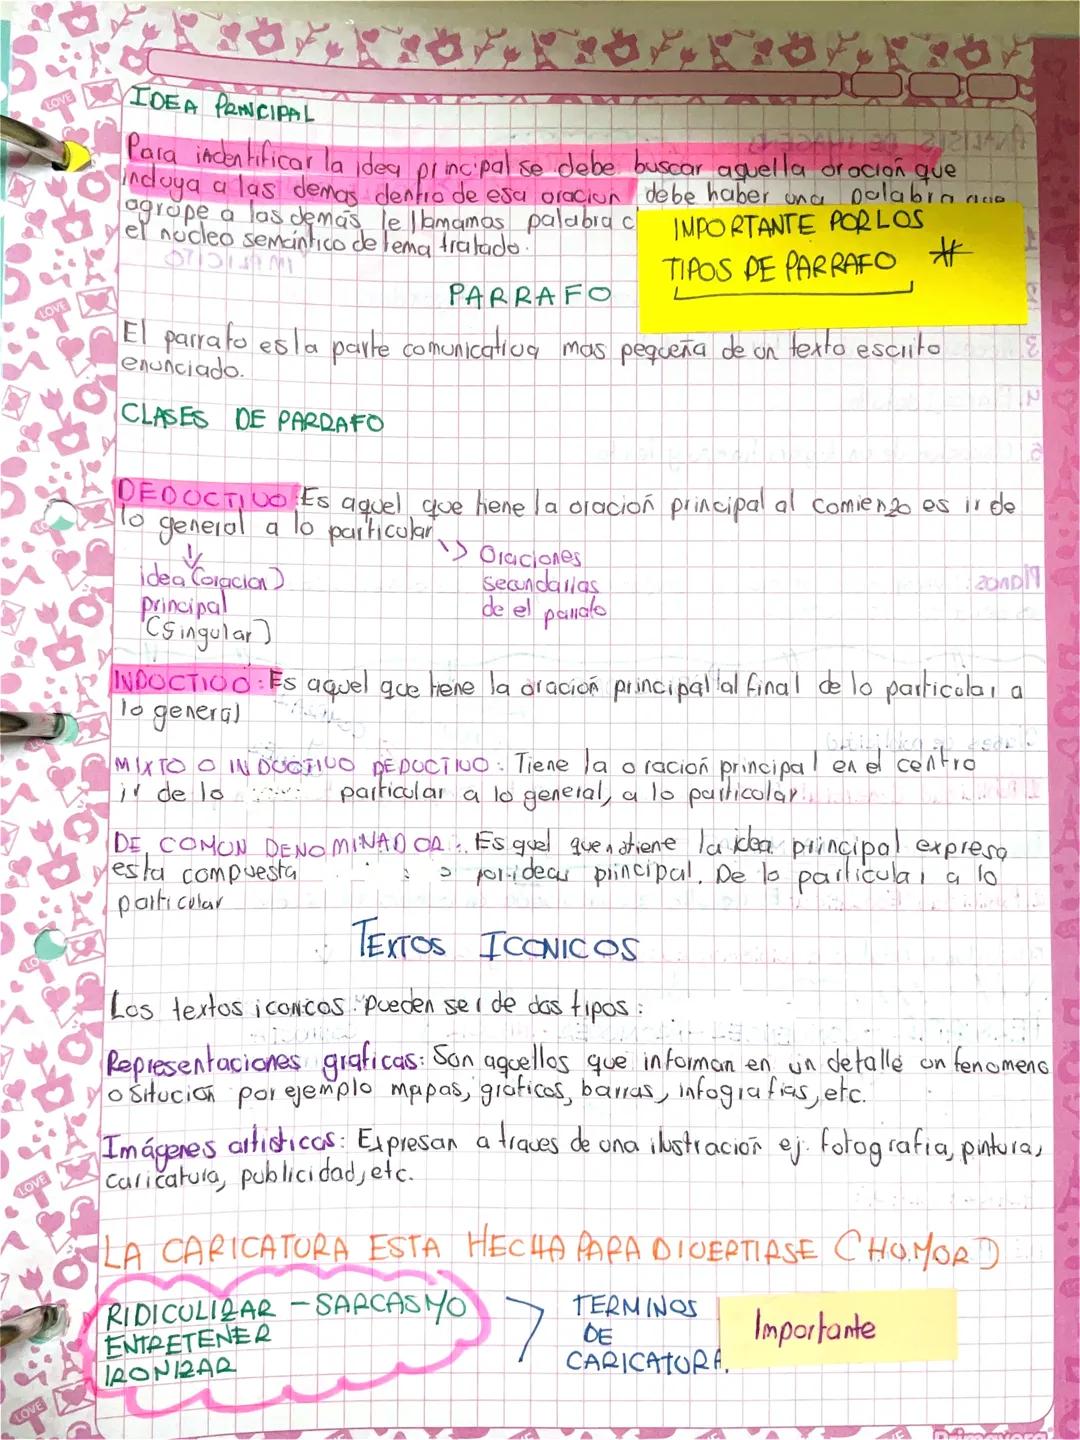 IDEA PRINCIPAL
Para indentificar la idea principal se debe buscar aquella oración que
incluya a las demas dentro de esa oracion debe haber una palabra que
agrupe a las demás le llamamos palabra c
el nucleo semántico de tema tratado.
IMPORTANTE POR LOS
TIPOS DE PARRAFO *
PARRAFO
El parrafo es la parte comunicativa mas pequeña de un texto escrito
enunciado.
CLASES DE PARRAFO
DEDUCTIVO: Es aquel que tiene la oración principal al comienzo es ir de
lo general a lo particular
idea (oracion)
principal
(Singular)
Oraciones
secundarias
de el parrafo
INDUCTIVO: Es aquel que tiene la oración principal al final de lo particular a
lo general
MIXTO O INDUCTIVO DEDUCTIVO: Tiene la oración principal en el centro
ir de lo particular a lo general, a lo particular.
DE COMUN DENOMINADOR: Es quel que tiene la idea principal expresa
esta compuesta por ideas principal. De lo particular a lo
particular
TEXTOS ICONICOS
Los textos iconicos pueden ser de dos tipos:
Representaciones graficas: Son aquellos que informan en un detalle un fenomeno
o situción por ejemplo mapas, gráficos, barras, infografias, etc.
Imágenes artisticas: Expresan a traves de una ilustración ej. fotografia, pintura,
caricatura, publicidad, etc.
LA CARICATURA ESTA HECHA PARA DIVERTIRSE (HUMOR)
RIDICULIZAR - SARCASMO
ENTRETENER
IRONIZAR
TERMINOS
DE
CARICATURA.
Importante